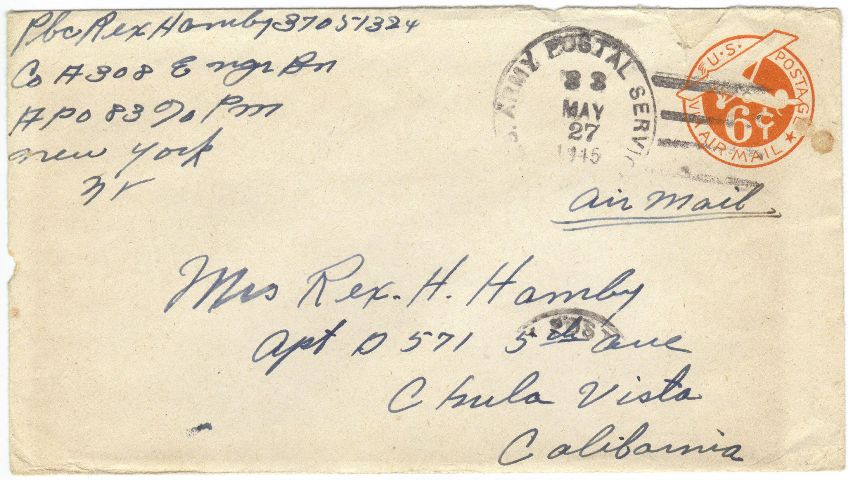 Pbc Rex Hamby 37051324
Co A 308 Engr Bn
APO 83 % Pm
New York
NY
U.S. ARMY POSTAL SERVICE
33
MAY
27
1945
U.S. POSTAGE
6¢
VIA AIR MAIL
Air Mail
Mrs Rex. H. Hamby
Apt D 571 5th ave
Chula Vista
California
POST